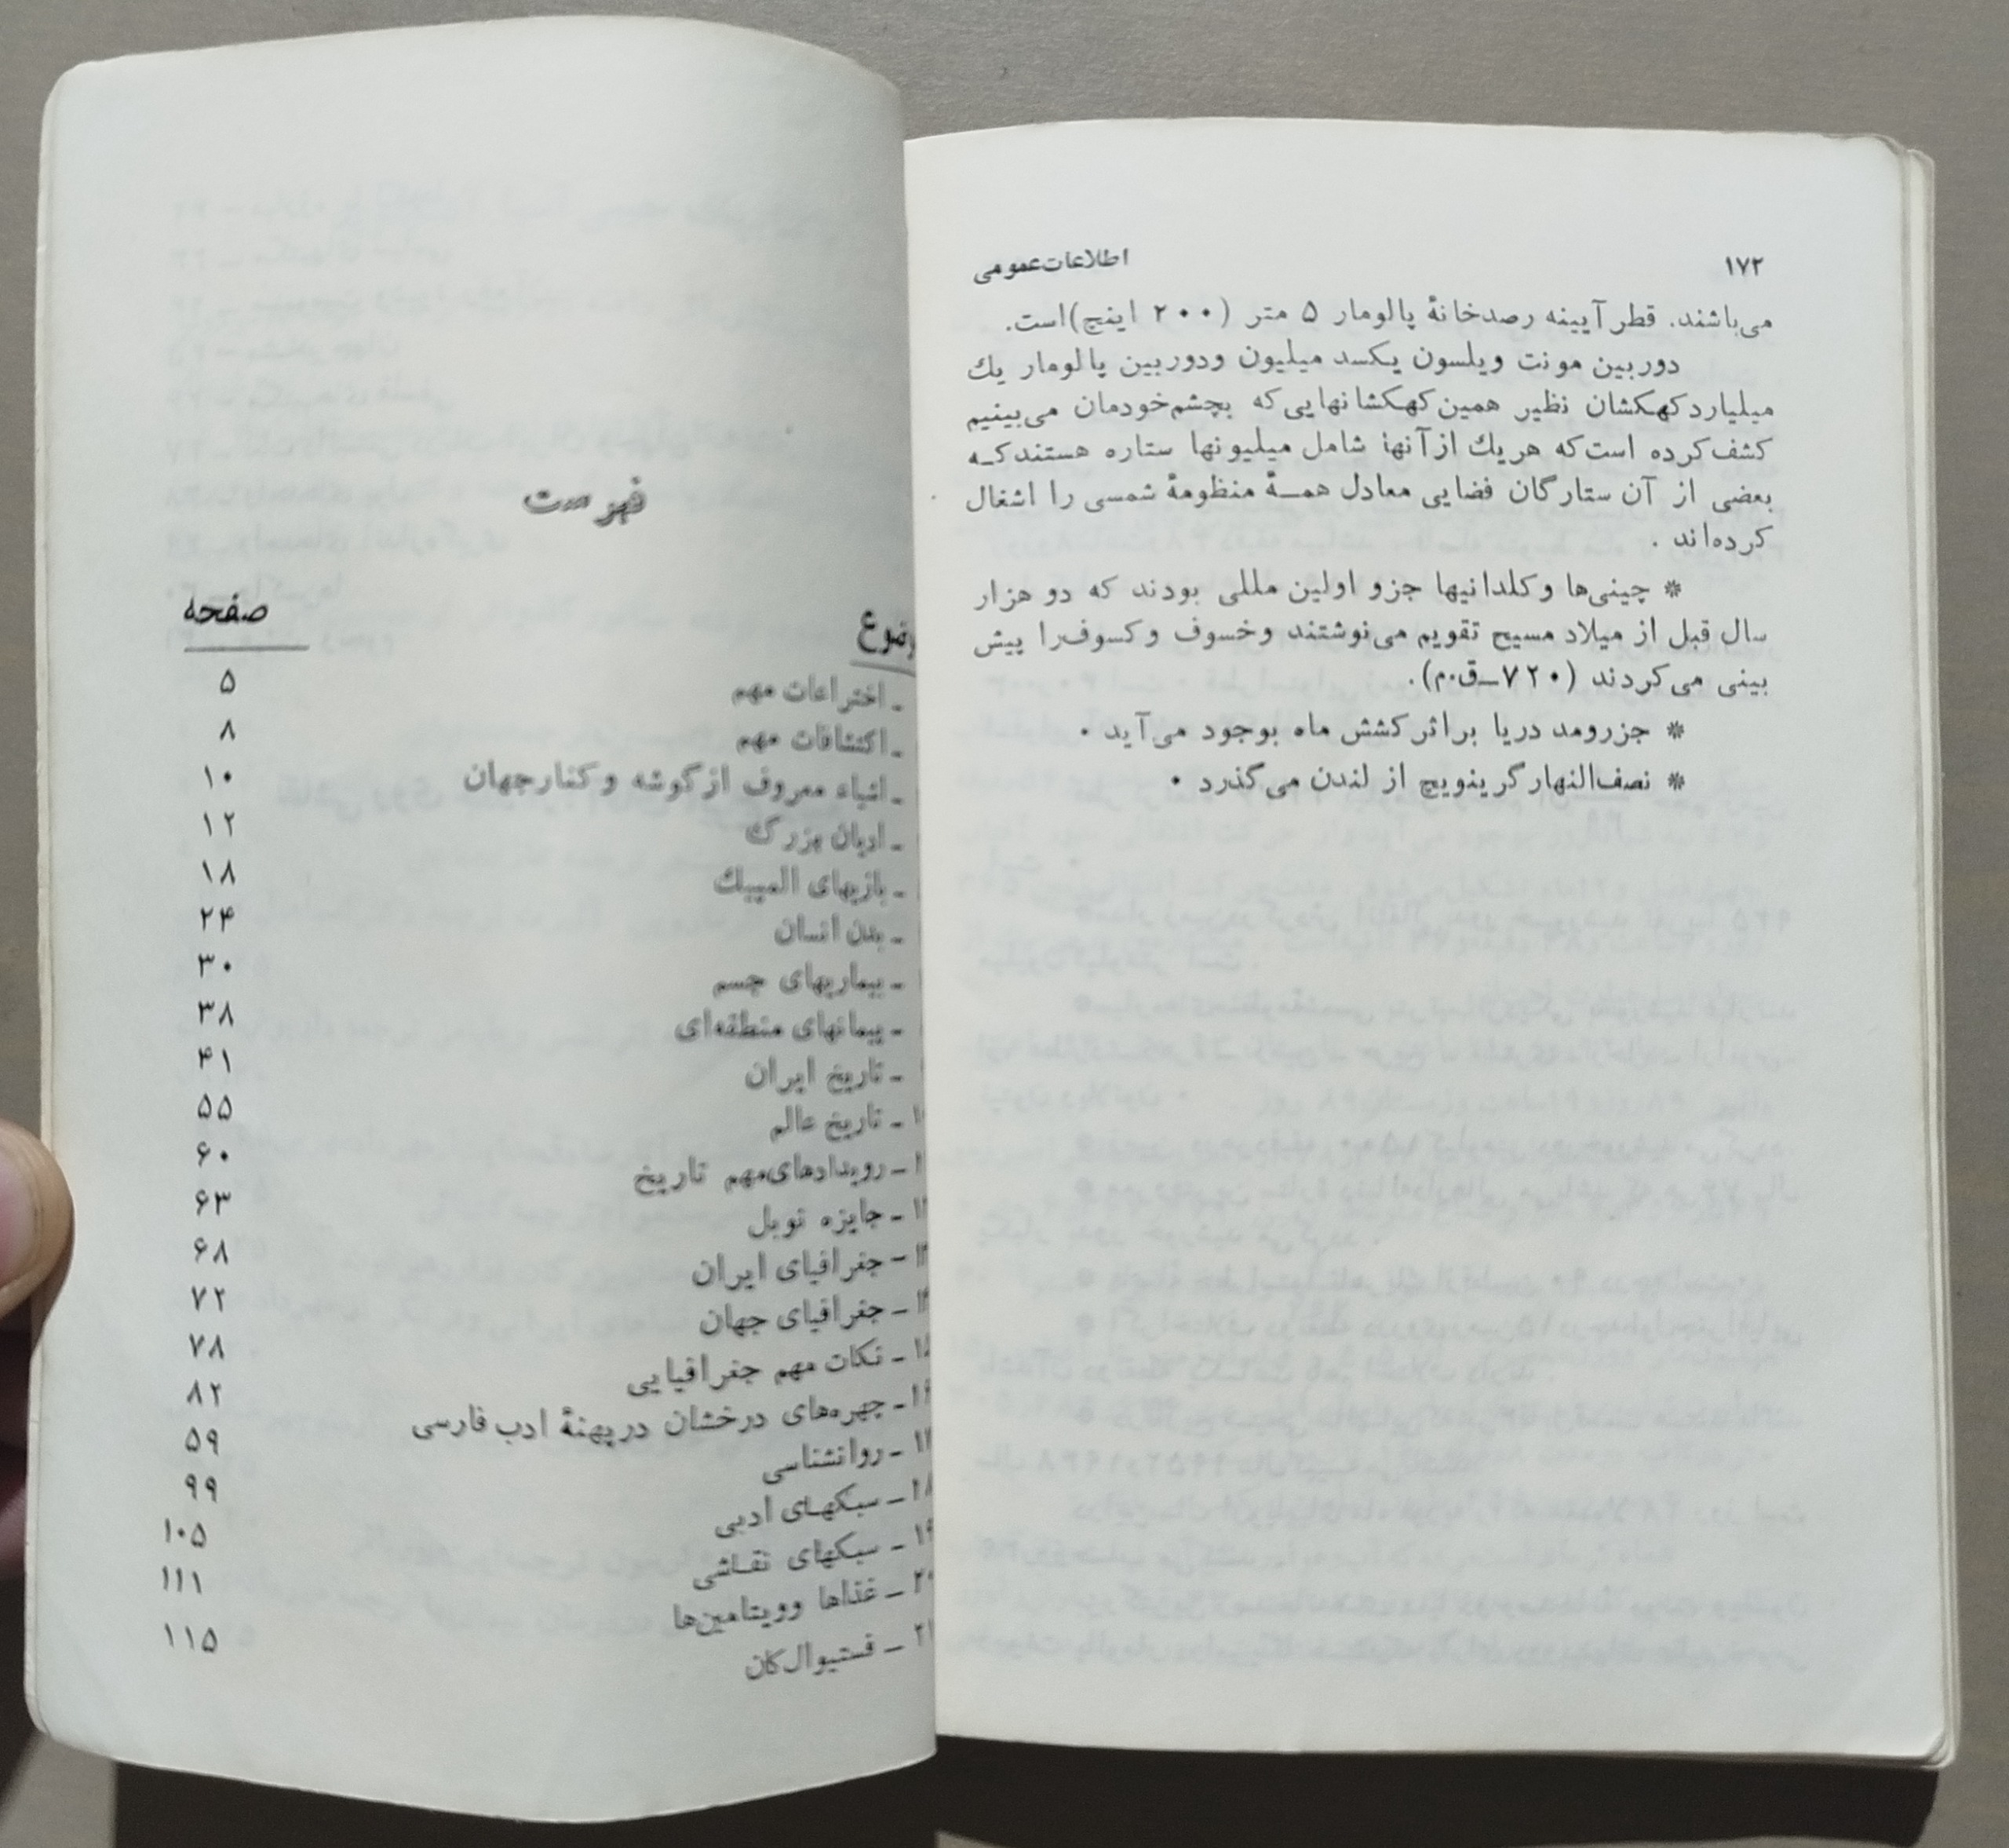 ۱۷۲
اطلاعات‌عمومی
می‌باشند. قطر آیینه رصدخانهٔ پالومار ۵ متر (۲۰۰ اینچ) است.
دوربین مونت ویلسون یکسد میلیون و دوربین پالومار یك
میلیارد کهکشان نظیر همین کهکشانهایی که بچشم خودمان می‌بینیم
کشف کرده است که هر یك از آنها شامل میلیونها ستاره هستند که
بعضی از آن ستارگان فضایی معادل همهٔ منظومهٔ شمسی را اشغال
کرده‌اند .
* چینی‌ها و کلدانیها جزو اولین مللی بودند که دو هزار
سال قبل از میلاد مسیح تقویم می‌نوشتند و خسوف و کسوف را پیش
بینی می‌کردند (۷۲۰ـق.م).
* جزرومد دریا براثر کشش ماه بوجود می‌آید .
* نصف‌النهار گرینویچ از لندن می‌گذرد .
فهرست
صفحه
ـ اختراعات مهم ۵
ـ اکتشافات مهم ۸
ـ اشیاء معروف از گوشه و کنار جهان ۱۰
ـ ادیان بزرگ ۱۲
ـ بازیهای المپیك ۱۸
ـ بدن انسان ۲۴
ـ بیماریهای جسم ۳۰
ـ پیمانهای منطقه‌ای ۳۸
ـ تاریخ ایران ۴۱
ـ تاریخ عالم ۵۵
ـ رویدادهای مهم تاریخ ۶۰
ـ جایزه نوبل ۶۳
ـ جغرافیای ایران ۶۸
ـ جغرافیای جهان ۷۲
ـ نکات مهم جغرافیایی ۷۸
ـ چهره‌های درخشان در پهنهٔ ادب فارسی ۸۲
ـ روانشناسی ۵۹
ـ سبکهای ادبی ۹۹
ـ سبکهای نقاشی ۱۰۵
ـ غذاها و ویتامین‌ها ۱۱۱
ـ فستیوال کان ۱۱۵